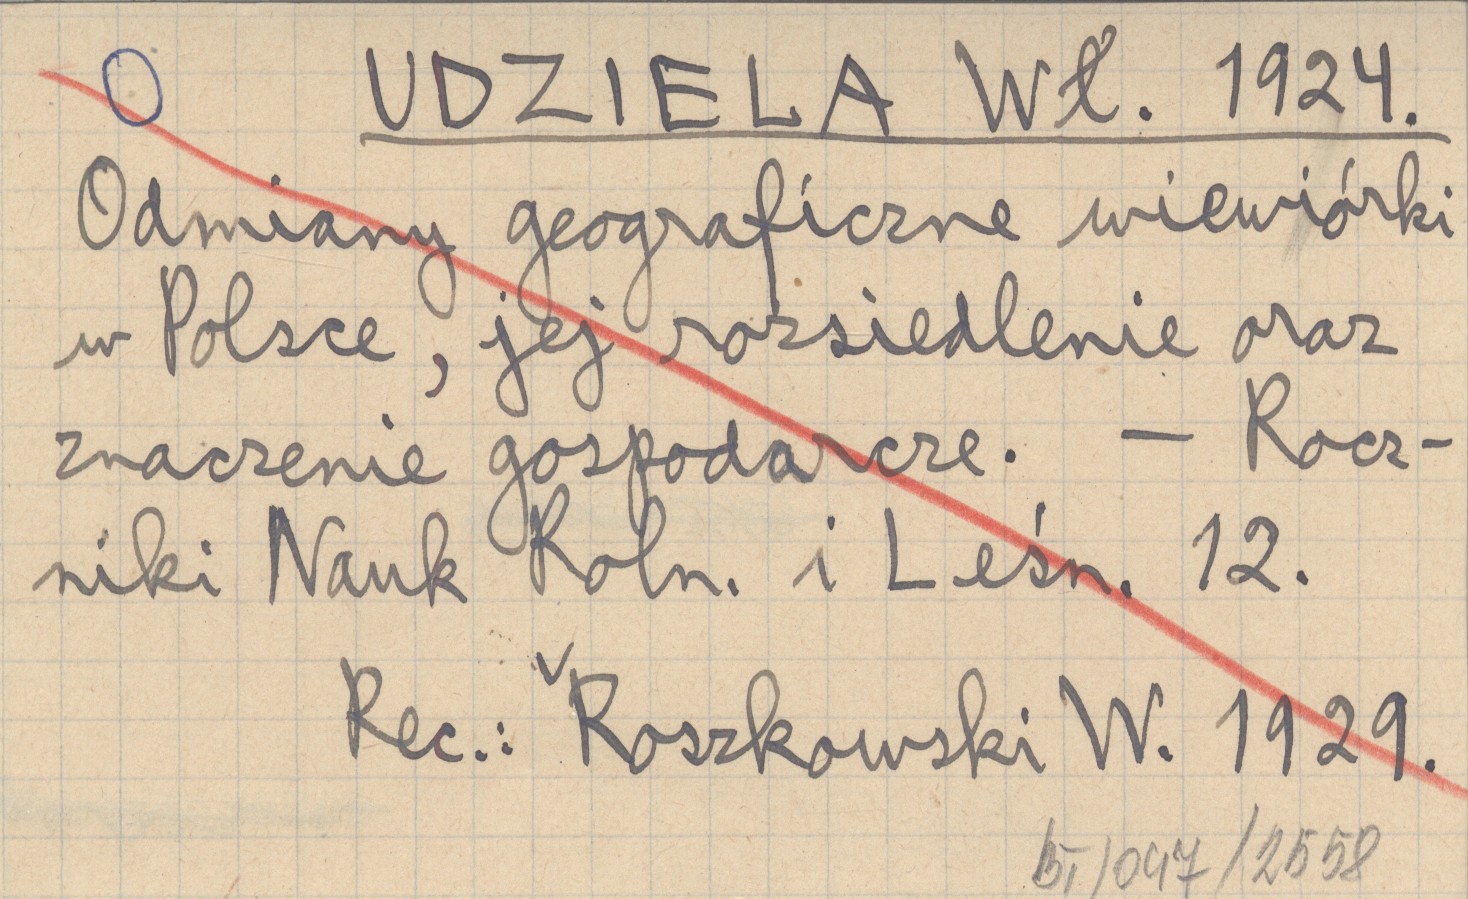 O UDZIELA Wł. 1924.
Odmiany geograficzne wiewiórki
w Polsce, jej rozsiedlenie oraz
znaczenie gospodarcze. — Rocz-
niki Nauk Roln. i Leśn. 12.
Rec.: Roszkowski W. 1929.
/047/2558